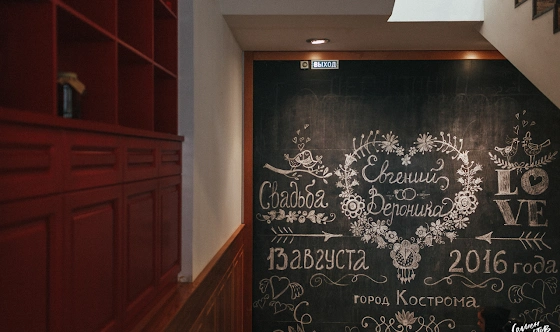 ВЫХОД
Свадьба
Евгений
Вероника
LO
VE
13 августа
2016 года
город Кострома